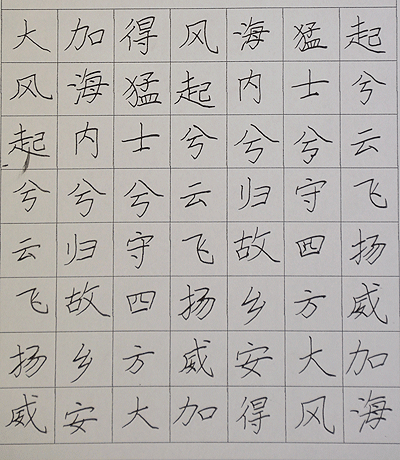 大加得风海猛起
风海猛起内士兮
起内士兮兮兮云
兮兮兮云归守飞
云归守飞故四扬
飞故四扬乡方威
扬乡方威安大加
威安大加得风海